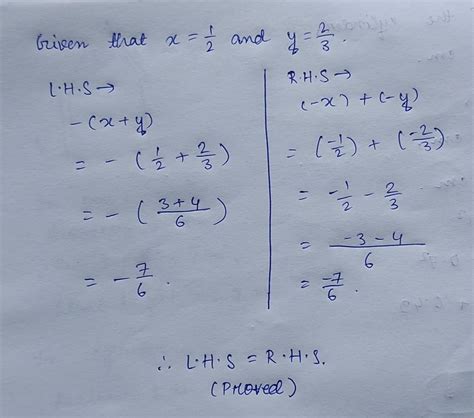 Given that x = 1/2 and y = 2/3.
L.H.S →
-(x+y)
= - (1/2 + 2/3)
= - (3+4/6)
= - 7/6.
R.H.S →
(-x) + (-y)
= (-1/2) + (-2/3)
= -1/2 - 2/3
= -3-4/6
= -7/6.
∴ L.H.S = R.H.S.
(Proved)